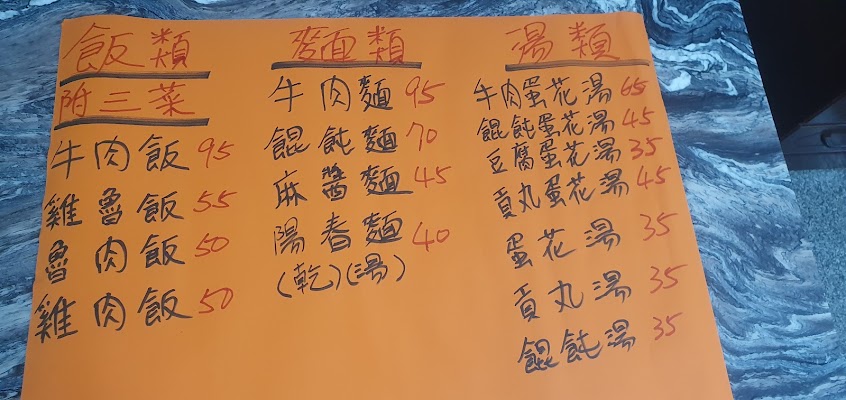 飯類
附三菜
牛肉飯 95
雞魯飯 55
魯肉飯 50
雞肉飯 50
麵類
牛肉麵 95
餛飩麵 70
麻醬麵 45
陽春麵 40
(乾)(湯)
湯類
牛肉蛋花湯 65
餛飩蛋花湯 45
豆腐蛋花湯 35
貢丸蛋花湯 45
蛋花湯 35
貢丸湯 35
餛飩湯 35